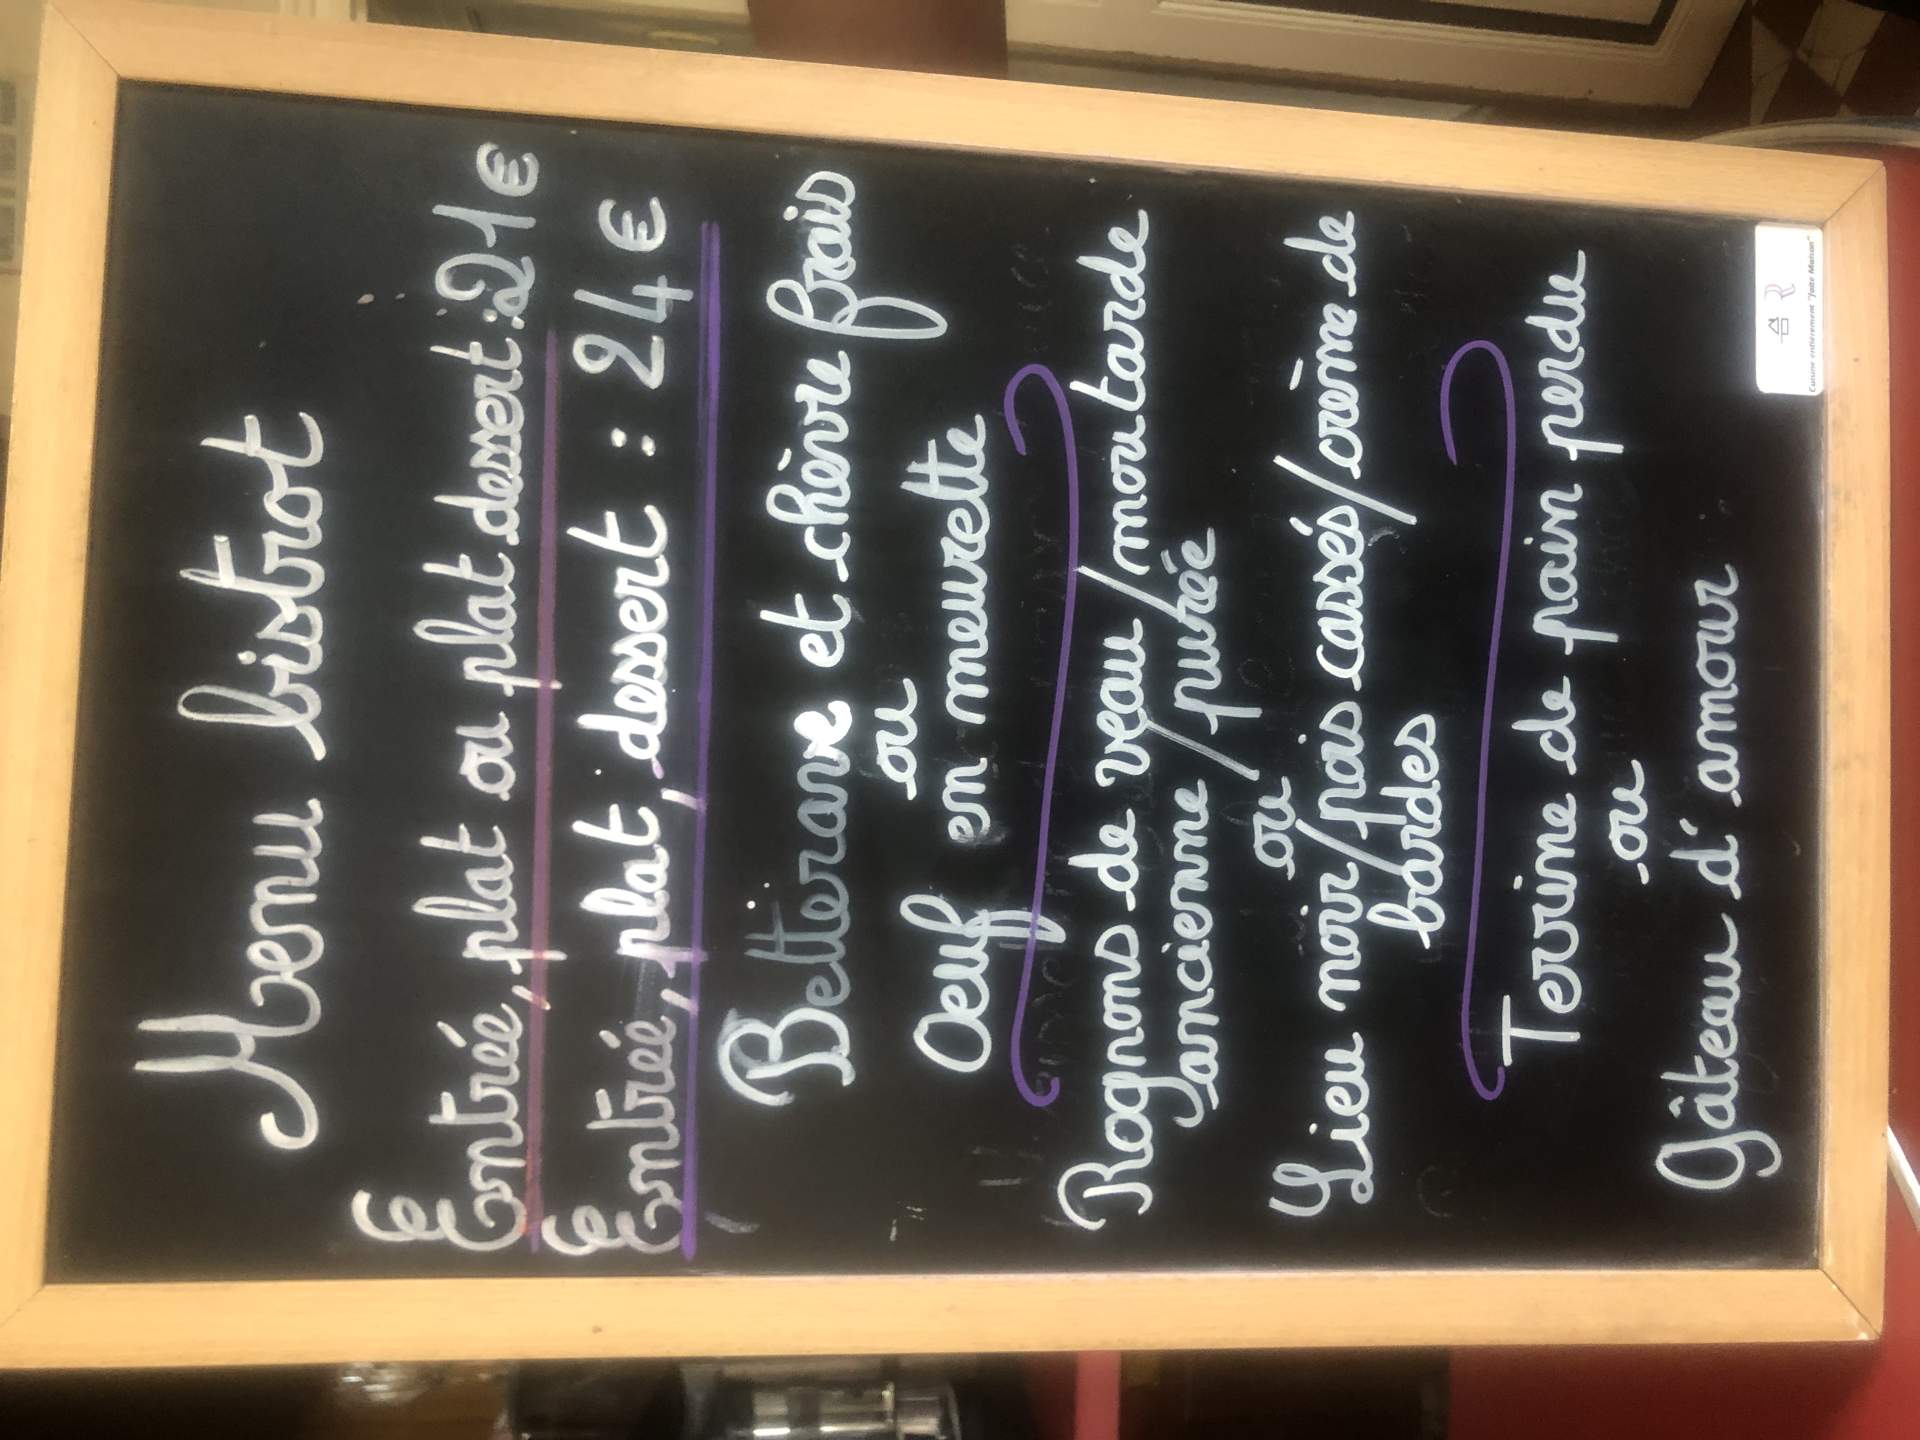 Menu bistrot
Entrée, plat ou plat dessert : 21€
Entrée, plat, dessert : 24€
Betterave et chèvre frais
ou
Oeuf en meurette
Rognons de veau / moutarde
ancienne / purée
ou
Lieu noir / pois cassés / crème de
bardes
Terrine de pain perdu
ou
Gâteau d'amour
R
Cuisine entièrement "Faite Maison"